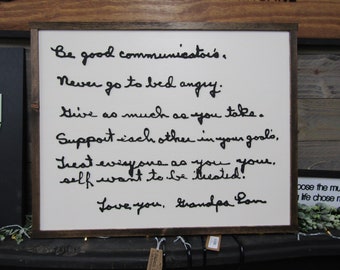 Be good communicators.
Never go to bed angry.
Give as much as you take.
Support each other in your goals.
Treat everyone as you your
self want to be treated.
Love you, Grandpa
oose the mu
life chose m